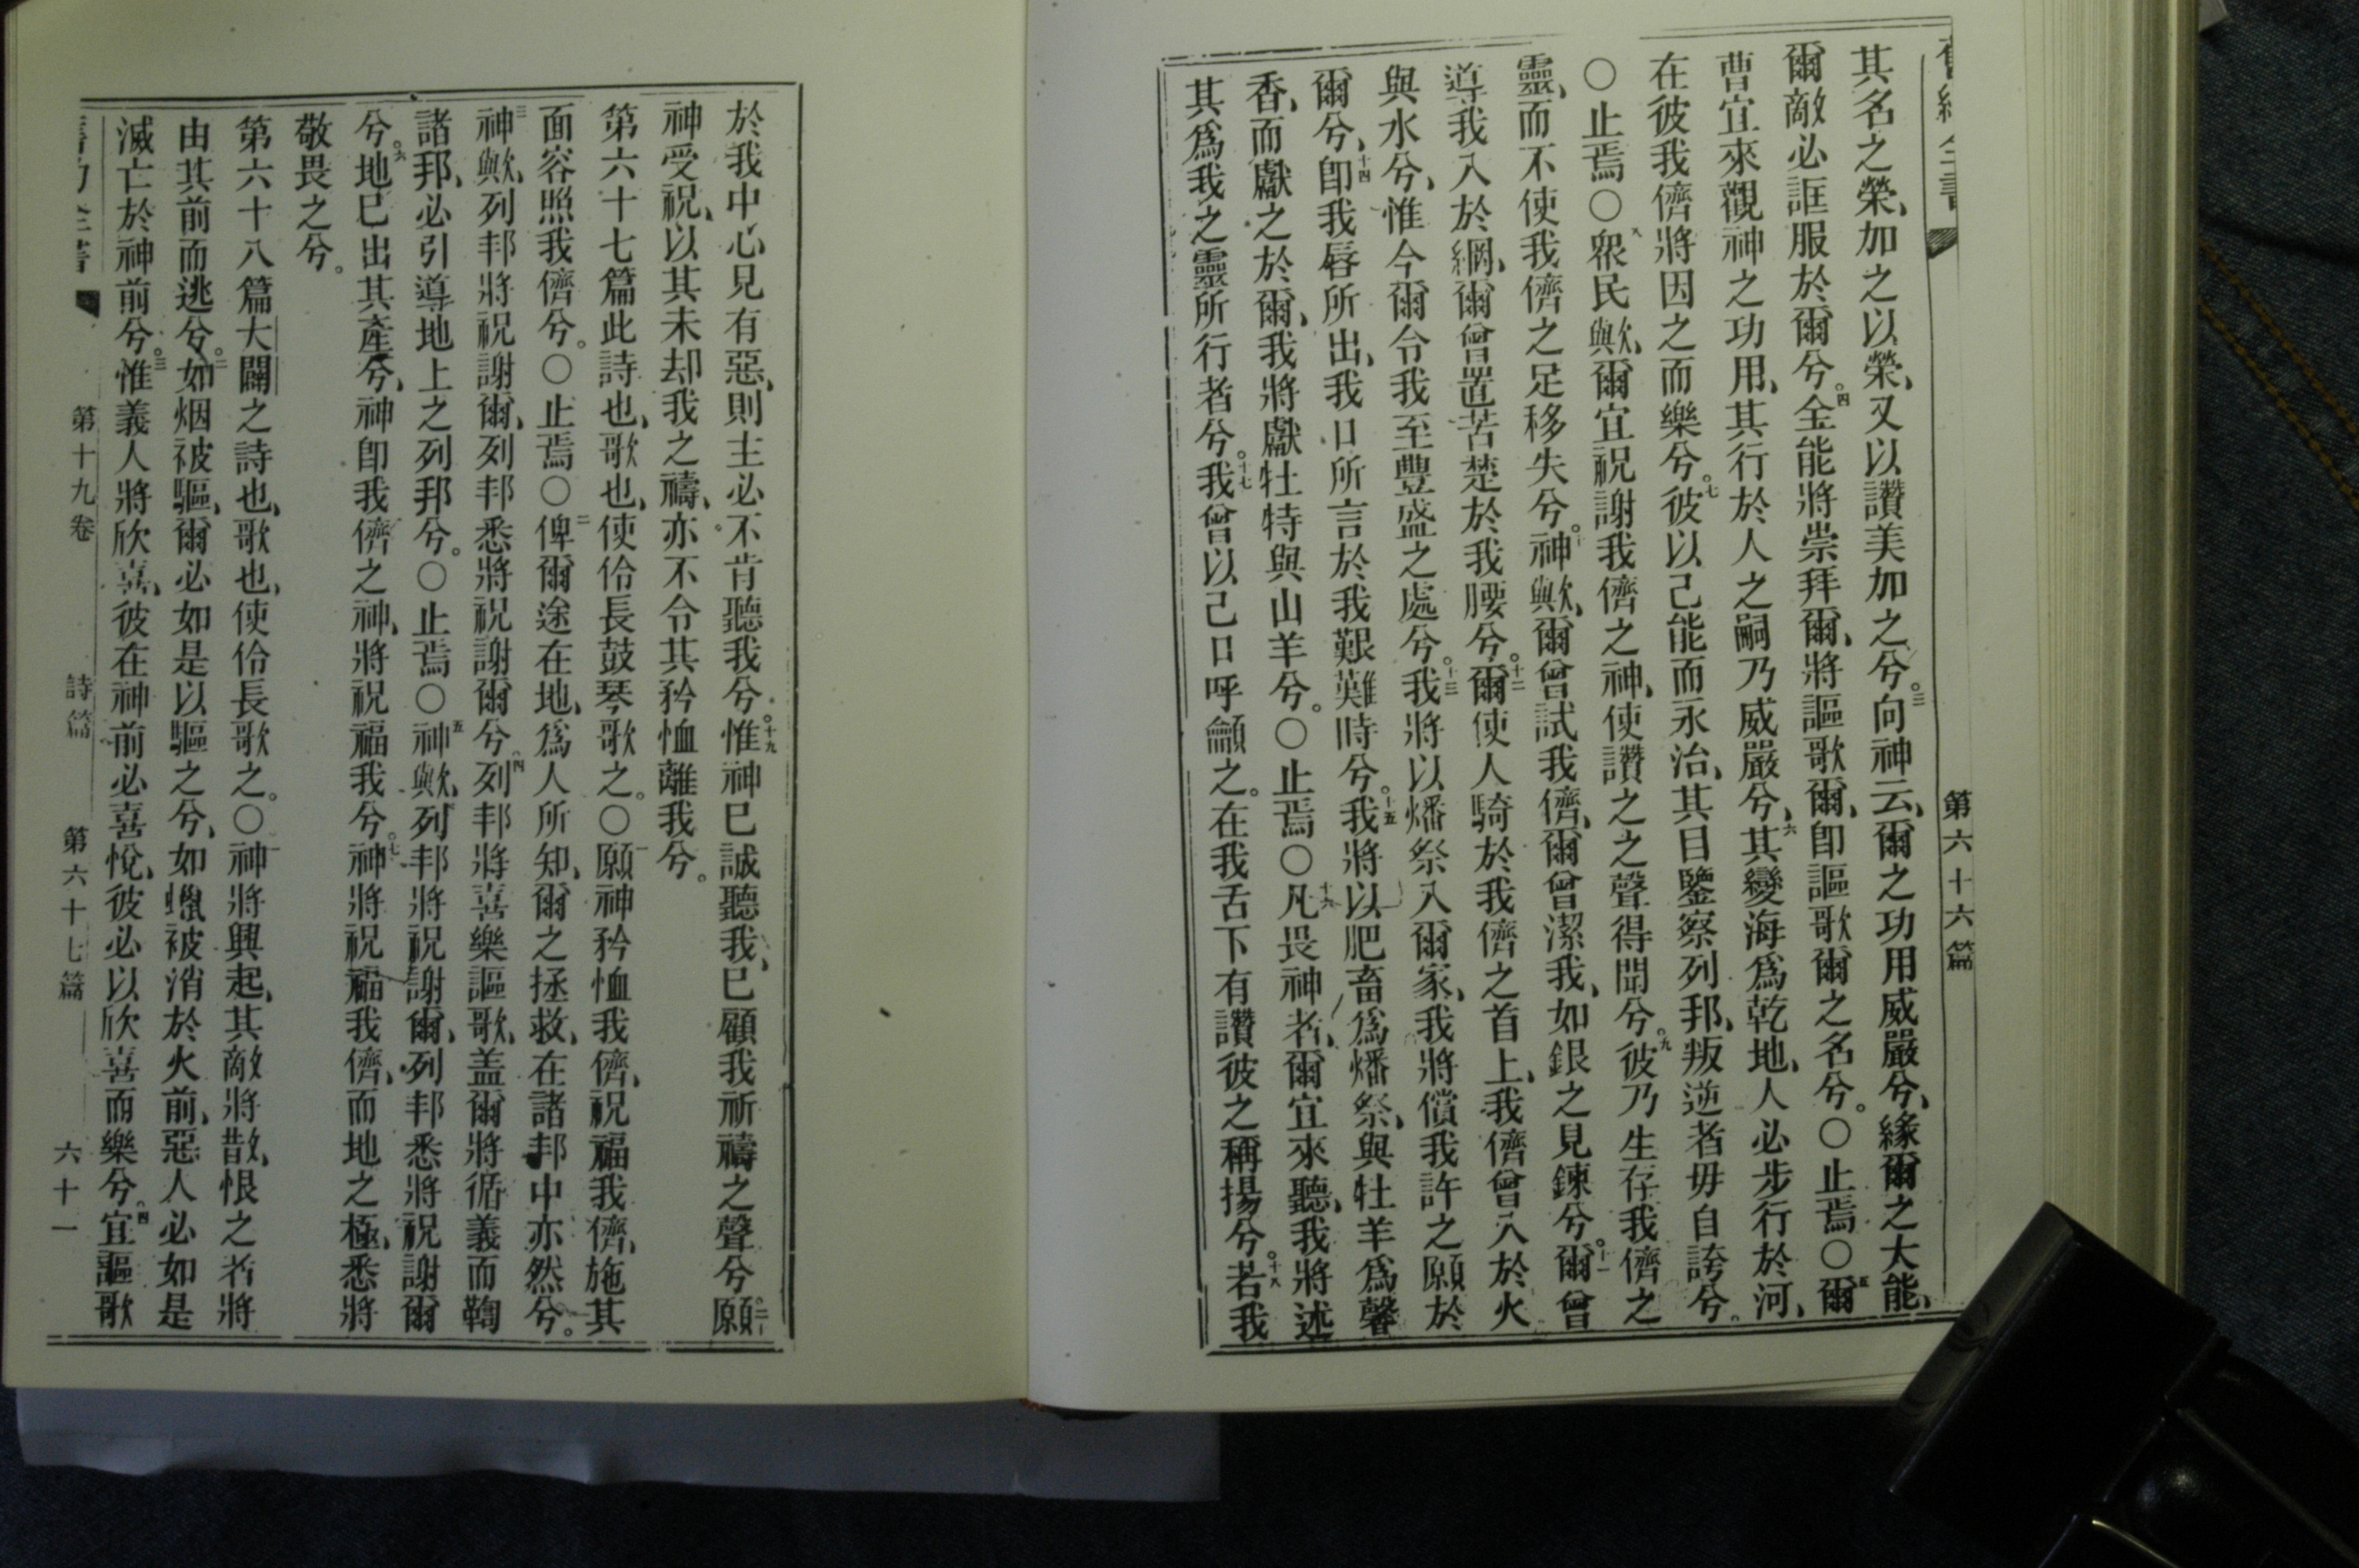 第六十六篇
其名之榮、加之以榮、又以讚美加之兮。三向神云、爾之功用威嚴兮、緣爾之大能、
爾敵必誆服於爾兮。四全能將崇拜爾、將謳歌爾、卽謳歌爾之名兮。〇止焉〇五爾
曹宜來觀神之功用、其行於人之嗣乃威嚴兮、六其變海爲乾地、人必步行於河、
在彼我儕將因之而樂兮。七彼以己能而永治、其目鑒察列邦、叛逆者毋自誇兮。
〇止焉〇八衆民歟、爾宜祝謝我儕之神、使讚之之聲得聞兮。九彼乃生存我儕之
靈、而不使我儕之足移失兮。十神歟、爾曾試我儕、爾曾潔我、如銀之見鍊兮。十一爾曾
導我入於網、爾曾置苦楚於我腰兮。十二爾使人騎於我儕之首上、我儕曾入於火
與水兮、惟今爾令我至豐盛之處兮。十三我將以燔祭入爾家、我將償我許之願於
爾兮、十四卽我唇所出、我口所言於我艱難時兮。十五我將以肥畜爲燔祭、與牡羊爲馨
香、而獻之於爾、我將獻牡特與山羊兮。〇止焉〇十六凡畏神者、爾宜來聽、我將述
其爲我之靈所行者兮。十七我曾以己口呼籲之。在我舌下有讚彼之稱揚兮。十八若我
於我中心見有惡、則主必不肯聽我兮。十九惟神已誠聽我、已顧我祈禱之聲兮二十願
神受祝、以其未却我之禱、亦不令其矜恤離我兮。
第六十七篇此詩也、歌也、使伶長鼓琴歌之。〇一願神矜恤我儕、祝福我儕、施其
面容照我儕兮。〇止焉〇二俾爾途在地、爲人所知、爾之拯救、在諸邦中亦然兮。
三神歟、列邦將祝謝爾、列邦悉將祝謝爾兮。四列邦將喜樂謳歌、盖爾將循義而鞫
諸邦、必引導地上之列邦兮。〇止焉〇五神歟、列邦將祝謝爾、列邦悉將祝謝爾
兮。六地已出其產兮、神卽我儕之神、將祝福我兮。七神將祝福我儕、而地之極、悉將
敬畏之兮。
第六十八篇大闢之詩也、歌也、使伶長歌之。〇一神將興起、其敵將散、恨之者將
由其前而逃兮。二如烟被驅、爾必如是以驅之兮、如蠟被消於火前、惡人必如是
滅亡於神前兮。三惟義人將欣喜、彼在神前必喜悅、彼必以欣喜而樂兮。四宜謳歌
第十九卷 詩篇 第六十七篇 六十一